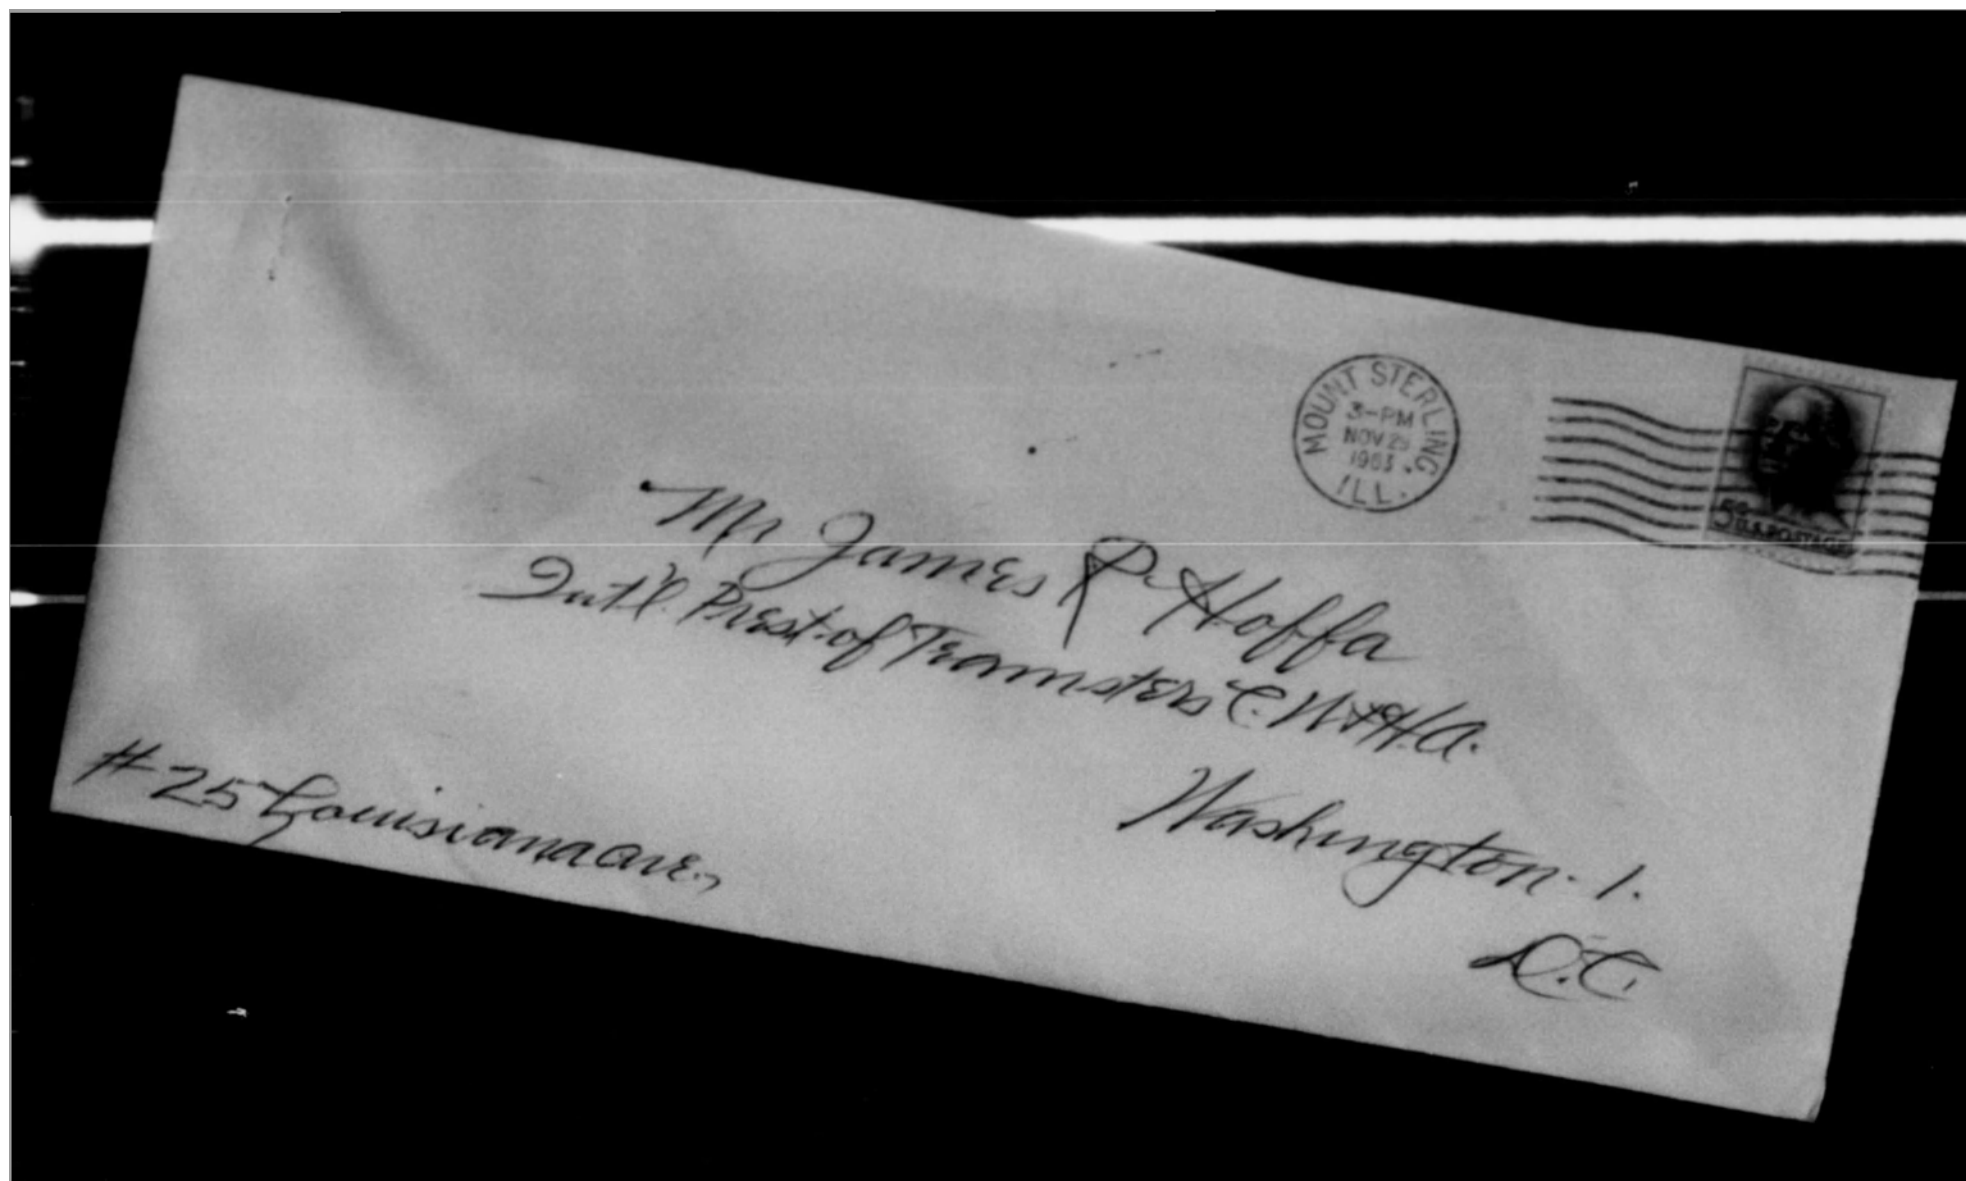 MOUNT STERLING, ILL.
3-PM
NOV 29
1963
5¢
U.S. POSTAGE
Mr James R. Hoffa
Int'l. Prest. of Teamsters C. W. & H. A.
Washington. 1.
D.C.
#25 Louisiana ave.,